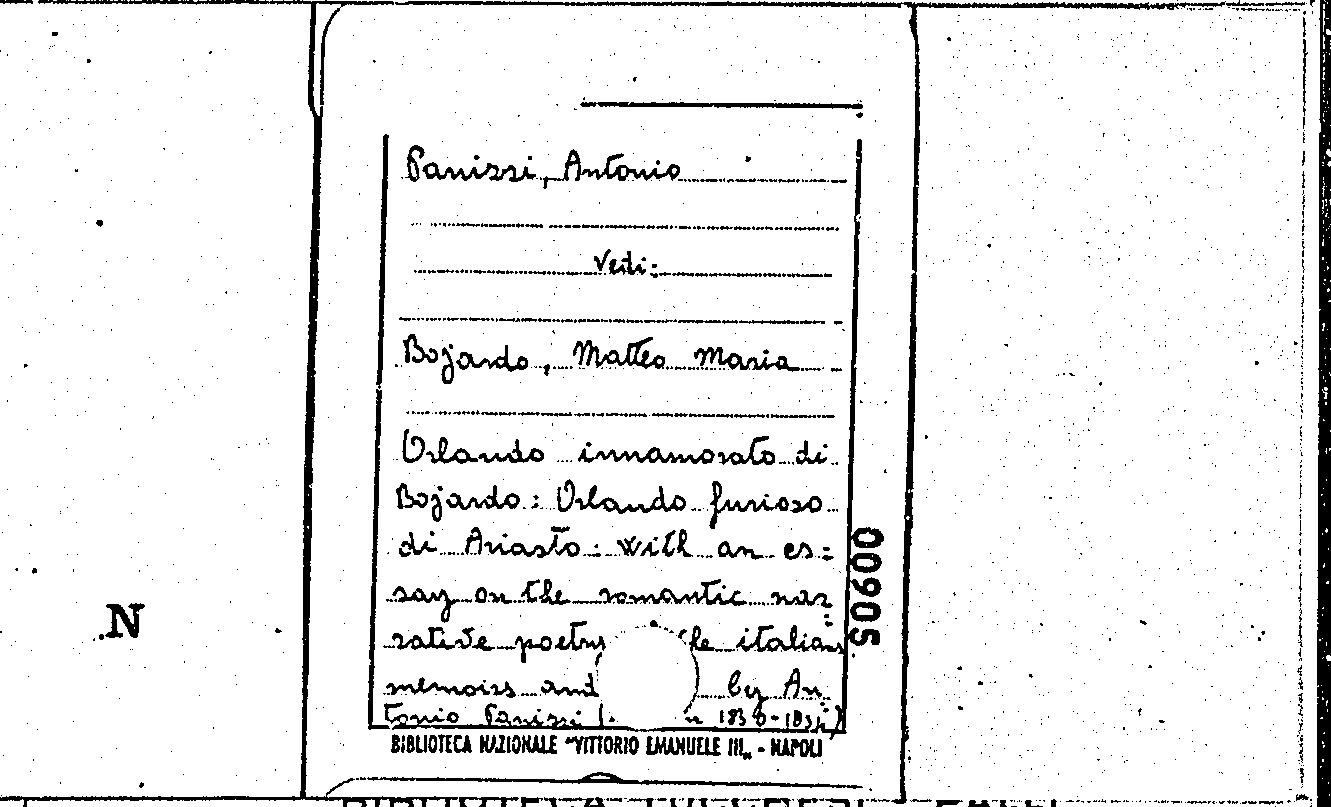 Panizzi, Antonio
Vedi:
Bojardo, Matteo Maria
Orlando innamorato di
Bojardo: Orlando furioso
di Ariosto: With an es:
say on the romantic nar:
rative poetry the italians
memoirs and by An:
tonio Panizzi
BIBLIOTECA NAZIONALE "VITTORIO EMANUELE III„ - NAPOLI
00905
N